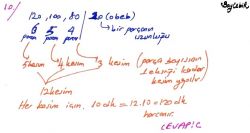 10/
120, 100, 80 | 20 (obeb)
6 parça 5 parça 4 parça
bir parçanın uzunluğu
5 kesim 4 kesim 3 kesim (parça sayısının 1 eksiği kadar kesim yapılır)
12 kesim
Her kesim için 10 dk = 12.10 = 120 dk
harcanır.
CEVAP: C